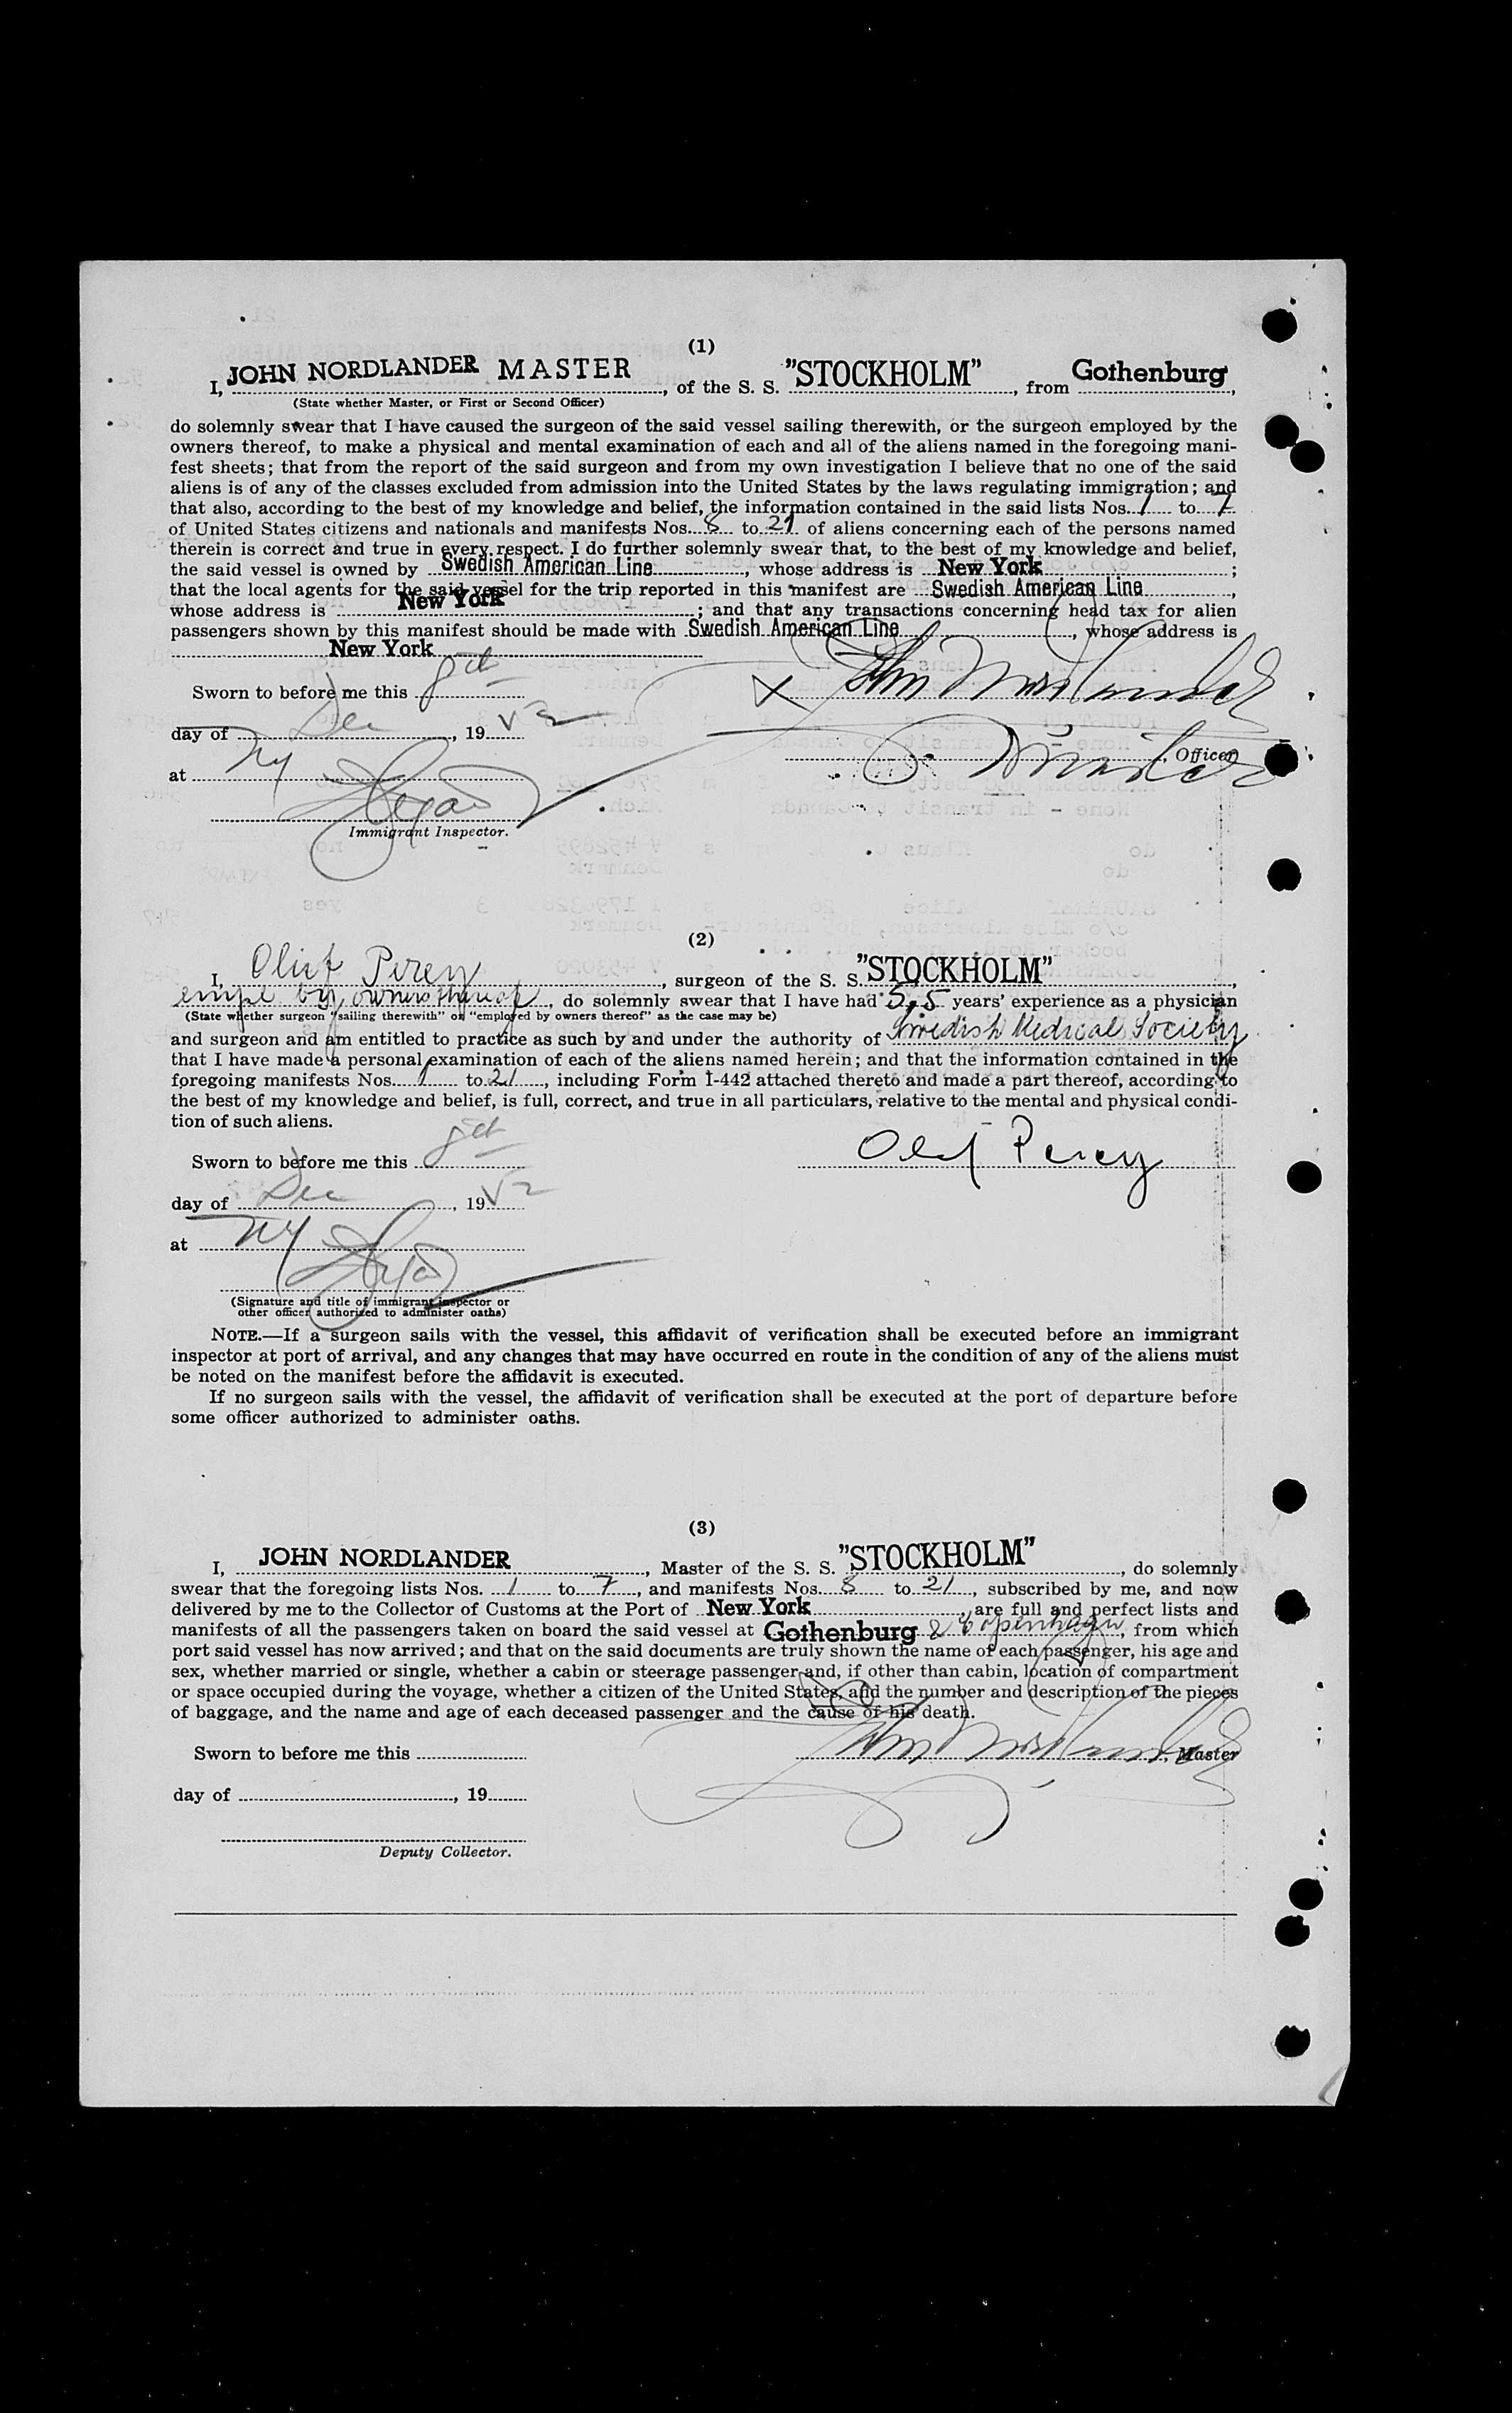 (1)
I, JOHN NORDLANDER MASTER, of the S. S. "STOCKHOLM", from Gothenburg,
(State whether Master, or First or Second Officer)
do solemnly swear that I have caused the surgeon of the said vessel sailing therewith, or the surgeon employed by the
owners thereof, to make a physical and mental examination of each and all of the aliens named in the foregoing mani-
fest sheets; that from the report of the said surgeon and from my own investigation I believe that no one of the said
aliens is of any of the classes excluded from admission into the United States by the laws regulating immigration; and
that also, according to the best of my knowledge and belief, the information contained in the said lists Nos. 1 to 7
of United States citizens and nationals and manifests Nos. 8 to 21 of aliens concerning each of the persons named
therein is correct and true in every respect. I do further solemnly swear that, to the best of my knowledge and belief,
the said vessel is owned by Swedish American Line, whose address is New York;
that the local agents for the said vessel for the trip reported in this manifest are Swedish American Line,
whose address is New York; and that any transactions concerning head tax for alien
passengers shown by this manifest should be made with Swedish American Line, whose address is
New York
Sworn to before me this 8th
X John Nordlander
day of Dec, 1952
Master, Officer
at NY
Immigrant Inspector.
(2)
I, Olof Percy, surgeon of the S. S. "STOCKHOLM",
empl by owners thereof, do solemnly swear that I have had 5,5 years' experience as a physician
(State whether surgeon "sailing therewith" or "employed by owners thereof" as the case may be)
and surgeon and am entitled to practice as such by and under the authority of Swedish Medical Society
that I have made a personal examination of each of the aliens named herein; and that the information contained in the
foregoing manifests Nos. 1 to 21, including Form I-442 attached thereto and made a part thereof, according to
the best of my knowledge and belief, is full, correct, and true in all particulars, relative to the mental and physical condi-
tion of such aliens.
Sworn to before me this 8th
Olof Percy
day of Dec, 1952
at NY
(Signature and title of immigrant inspector or
other officer authorized to administer oaths)
NOTE.—If a surgeon sails with the vessel, this affidavit of verification shall be executed before an immigrant
inspector at port of arrival, and any changes that may have occurred en route in the condition of any of the aliens must
be noted on the manifest before the affidavit is executed.
If no surgeon sails with the vessel, the affidavit of verification shall be executed at the port of departure before
some officer authorized to administer oaths.
(3)
I, JOHN NORDLANDER, Master of the S. S. "STOCKHOLM", do solemnly
swear that the foregoing lists Nos. 1 to 7, and manifests Nos. 8 to 21, subscribed by me, and now
delivered by me to the Collector of Customs at the Port of New York, are full and perfect lists and
manifests of all the passengers taken on board the said vessel at Gothenburg & Copenhagen, from which
port said vessel has now arrived; and that on the said documents are truly shown the name of each passenger, his age and
sex, whether married or single, whether a cabin or steerage passenger and, if other than cabin, location of compartment
or space occupied during the voyage, whether a citizen of the United States, and the number and description of the pieces
of baggage, and the name and age of each deceased passenger and the cause of his death.
Sworn to before me this
John Nordlander, Master
day of , 19
Deputy Collector.